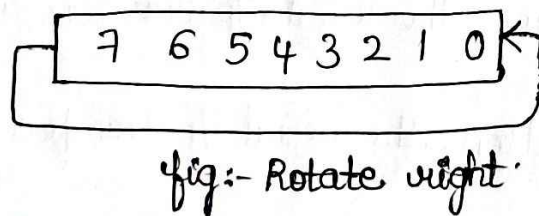 7 6 5 4 3 2 1 0
fig:- Rotate right.